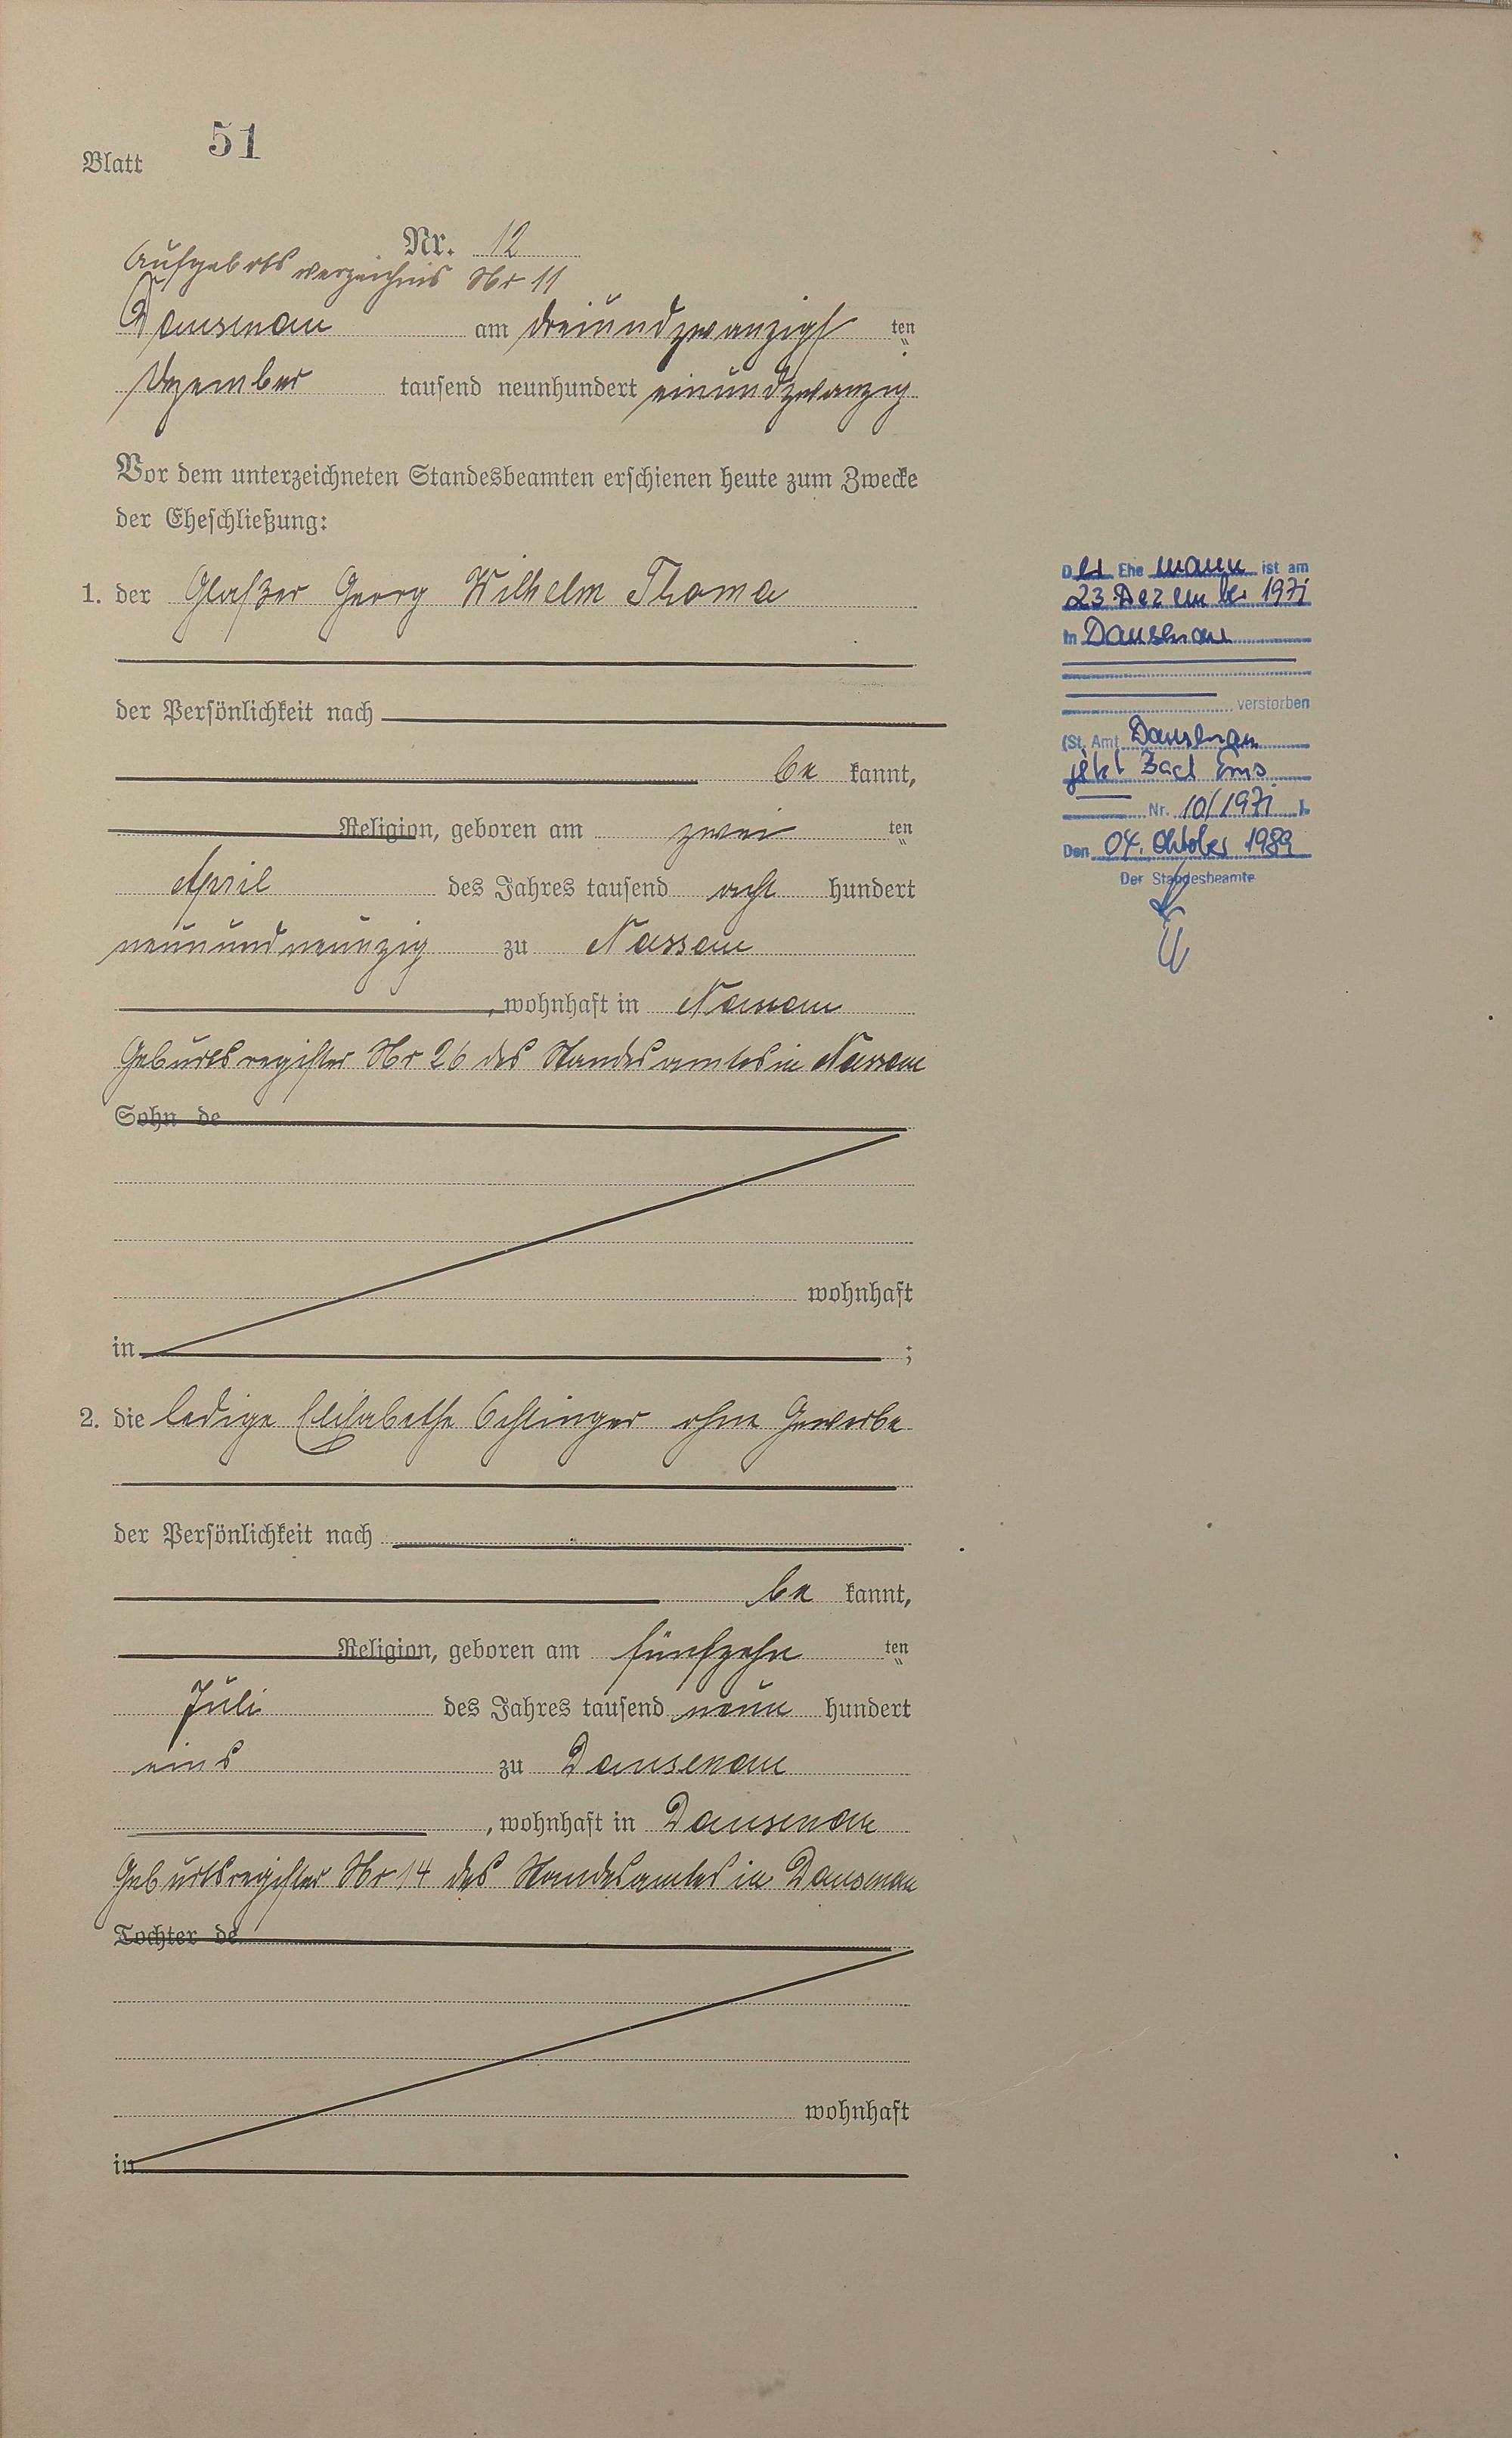 Blatt 51
Nr. 12
Aufgebots verzeichnis Nr 11
Dausenau am dreiundzwanzigs ten
Dezember tausend neunhundert einundzwanzig
Vor dem unterzeichneten Standesbeamten erschienen heute zum Zwecke
der Eheschließung:
1. der Georg Wilhelm Thoma
der Persönlichkeit nach
be kannt,
Religion, geboren am zwei ten
April des Jahres tausend acht hundert
neunundneunzig zu Nassau
, wohnhaft in Nassau
Geburtsregister Nr 26 des Standesamtes in Nassau
Sohn de
wohnhaft
in ;
2. die ledige Elisabethe Oehlinger ohne Gewerbe
der Persönlichkeit nach
be kannt,
Religion, geboren am fünfzehn ten
Juli des Jahres tausend neun hundert
eins zu Dausenau
, wohnhaft in Dausenau
Geburtsregister Nr 14 des Standesamtes in Dausenau
Tochter de
wohnhaft
in
Der Ehe mann ist am
23. Dezember 1971
in Dausenau
verstorben
(St. Amt Dausenau
jetzt Bad Ems
Nr. 10/1971 ).
Den 04. Oktober 1989
Der Standesbeamte